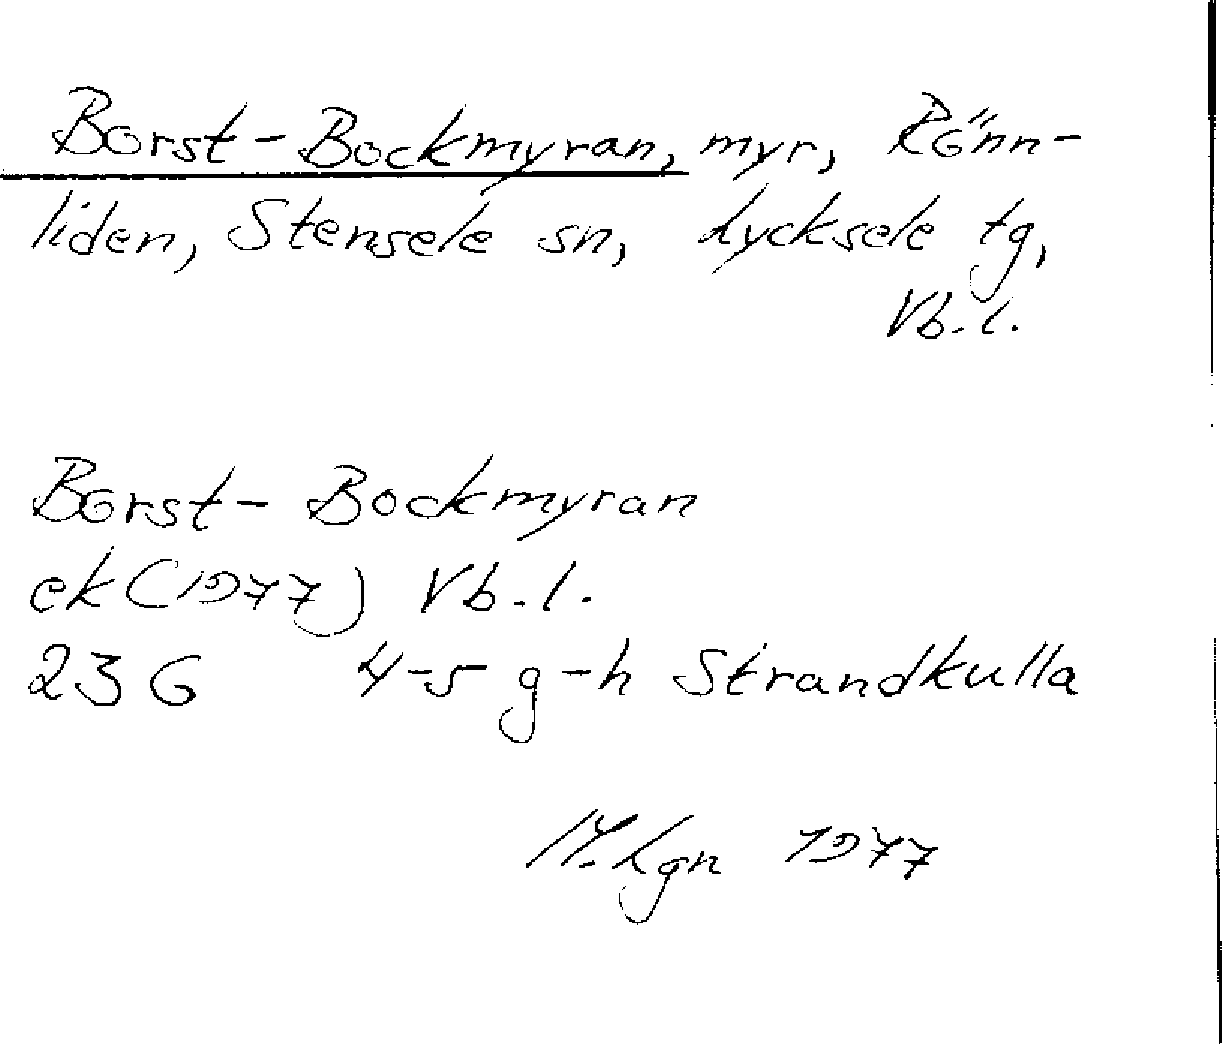 Borst-Bockmyran, myr, Rönn-
liden, Stensele sn, Lycksele tg,
Vb. l.
Borst- Bockmyran
ek (1977) Vb. l.
23 G 4-5 g-h Strandkulla
M. Lgn 1977